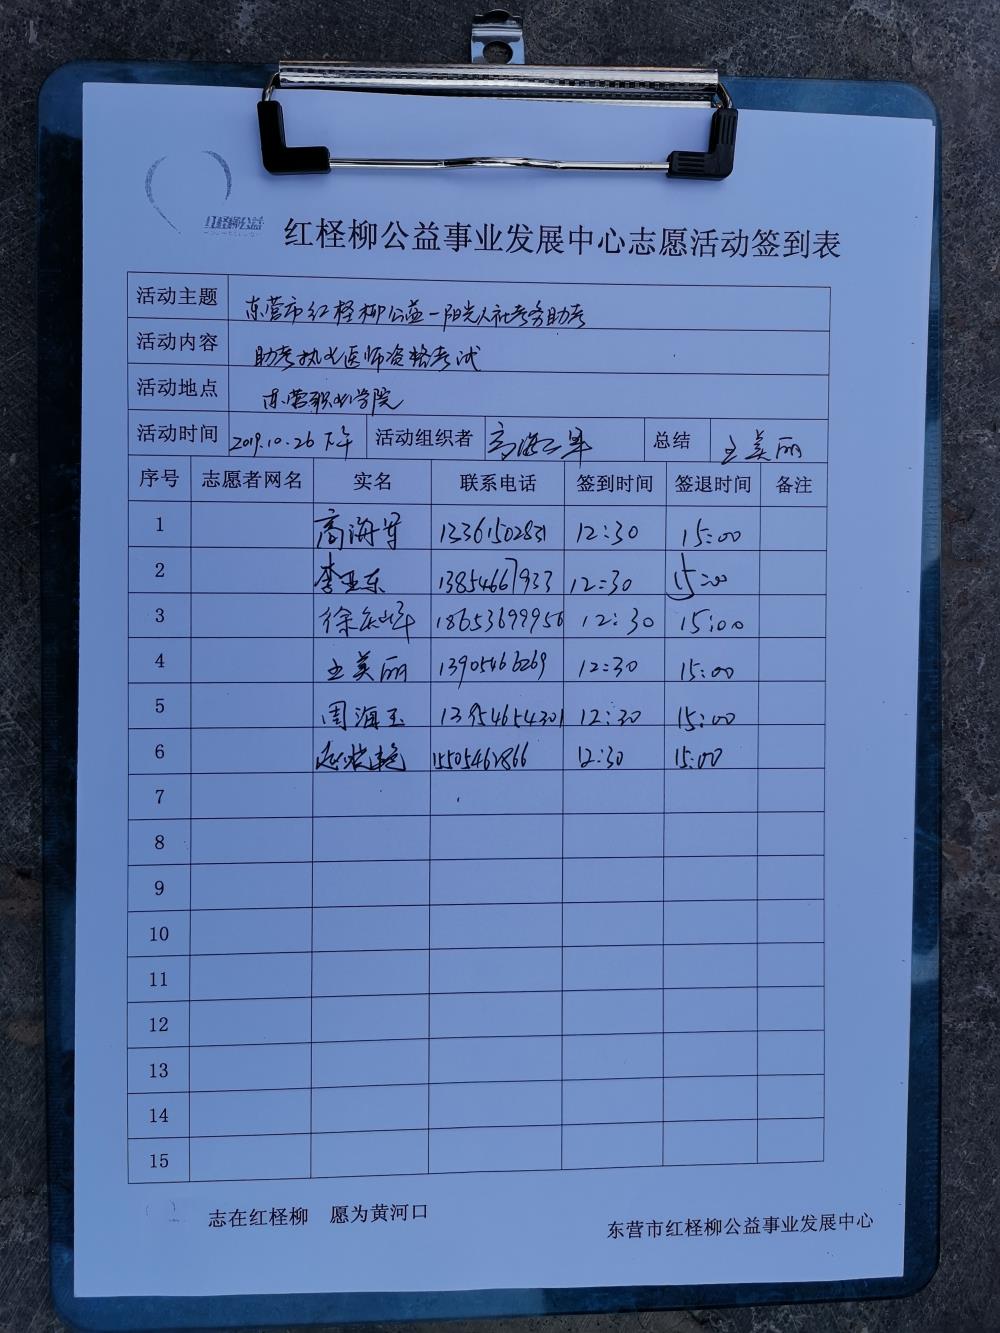 红柽柳公益
红柽柳公益事业发展中心志愿活动签到表
活动主题 东营市红柽柳公益一阳光人社考务助考
活动内容 助考执业医师资格考试
活动地点 东营职业学院
活动时间 2019.10.26下午 活动组织者 高海军 总结 王美丽
序号 志愿者网名 实名 联系电话 签到时间 签退时间 备注
1 高海军 13361502831 12:30 15:00
2 李亚东 13854667933 12:30 15:00
3 徐 18653699956 12:30 15:00
4 王美丽 13905466269 12:30 15:00
5 周海玉 13954654301 12:30 15:00
6 15505461866 12:30 15:00
7
8
9
10
11
12
13
14
15
志在红柽柳 愿为黄河口
东营市红柽柳公益事业发展中心